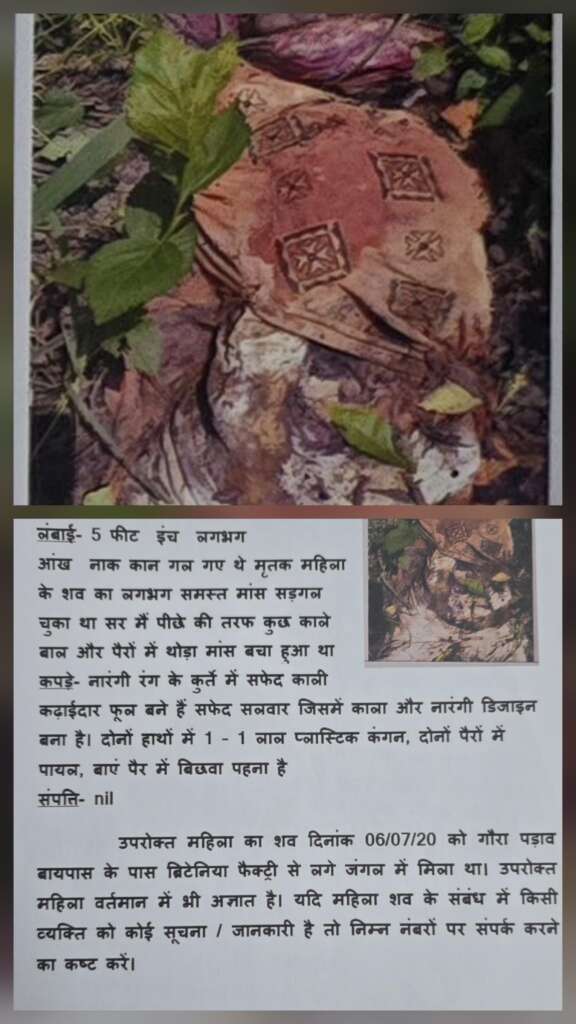 लंबाई- 5 फीट इंच लगभग
आंख नाक कान गल गए थे मृतक महिला
के शव का लगभग समस्त मांस सड़गल
चुका था सर मैं पीछे की तरफ कुछ काले
बाल और पैरों में थोड़ा मांस बचा हूआ था
कपड़े- नारंगी रंग के कुर्ते में सफेद काली
कढ़ाईदार फूल बने हैं सफेद सलवार जिसमें काला और नारंगी डिजाइन
बना है। दोनों हाथों में 1 - 1 लाल प्लास्टिक कंगन, दोनों पैरों में
पायल, बाएं पैर में बिछवा पहना है
संपत्ति- nil
उपरोक्त महिला का शव दिनांक 06/07/20 को गौरा पड़ाव
बायपास के पास ब्रिटेनिया फैक्ट्री से लगे जंगल में मिला था। उपरोक्त
महिला वर्तमान में भी अज्ञात है। यदि महिला शव के संबंध में किसी
व्यक्ति को कोई सूचना / जानकारी है तो निम्न नंबरों पर संपर्क करने
का कष्ट करें।